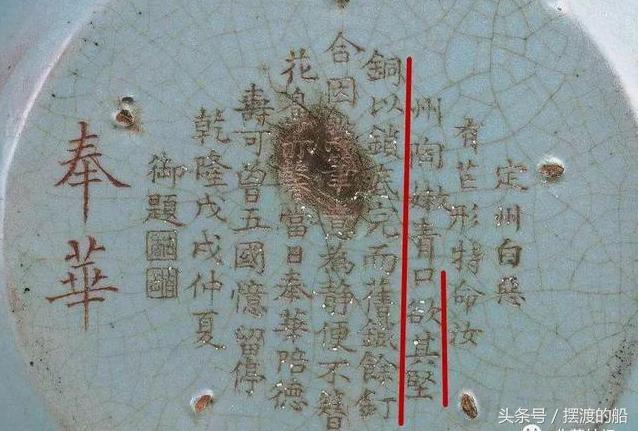 定州白惡
有芒形特命汝
州陶嫩青口欲其堅
銅以鎖底完而舊鐵餘釘
合因意為靜便不簪
花當日奉華陪德
壽可曾五國憶留停
乾隆戊戌仲夏
御題
奉華
头条号 / 摆渡的船